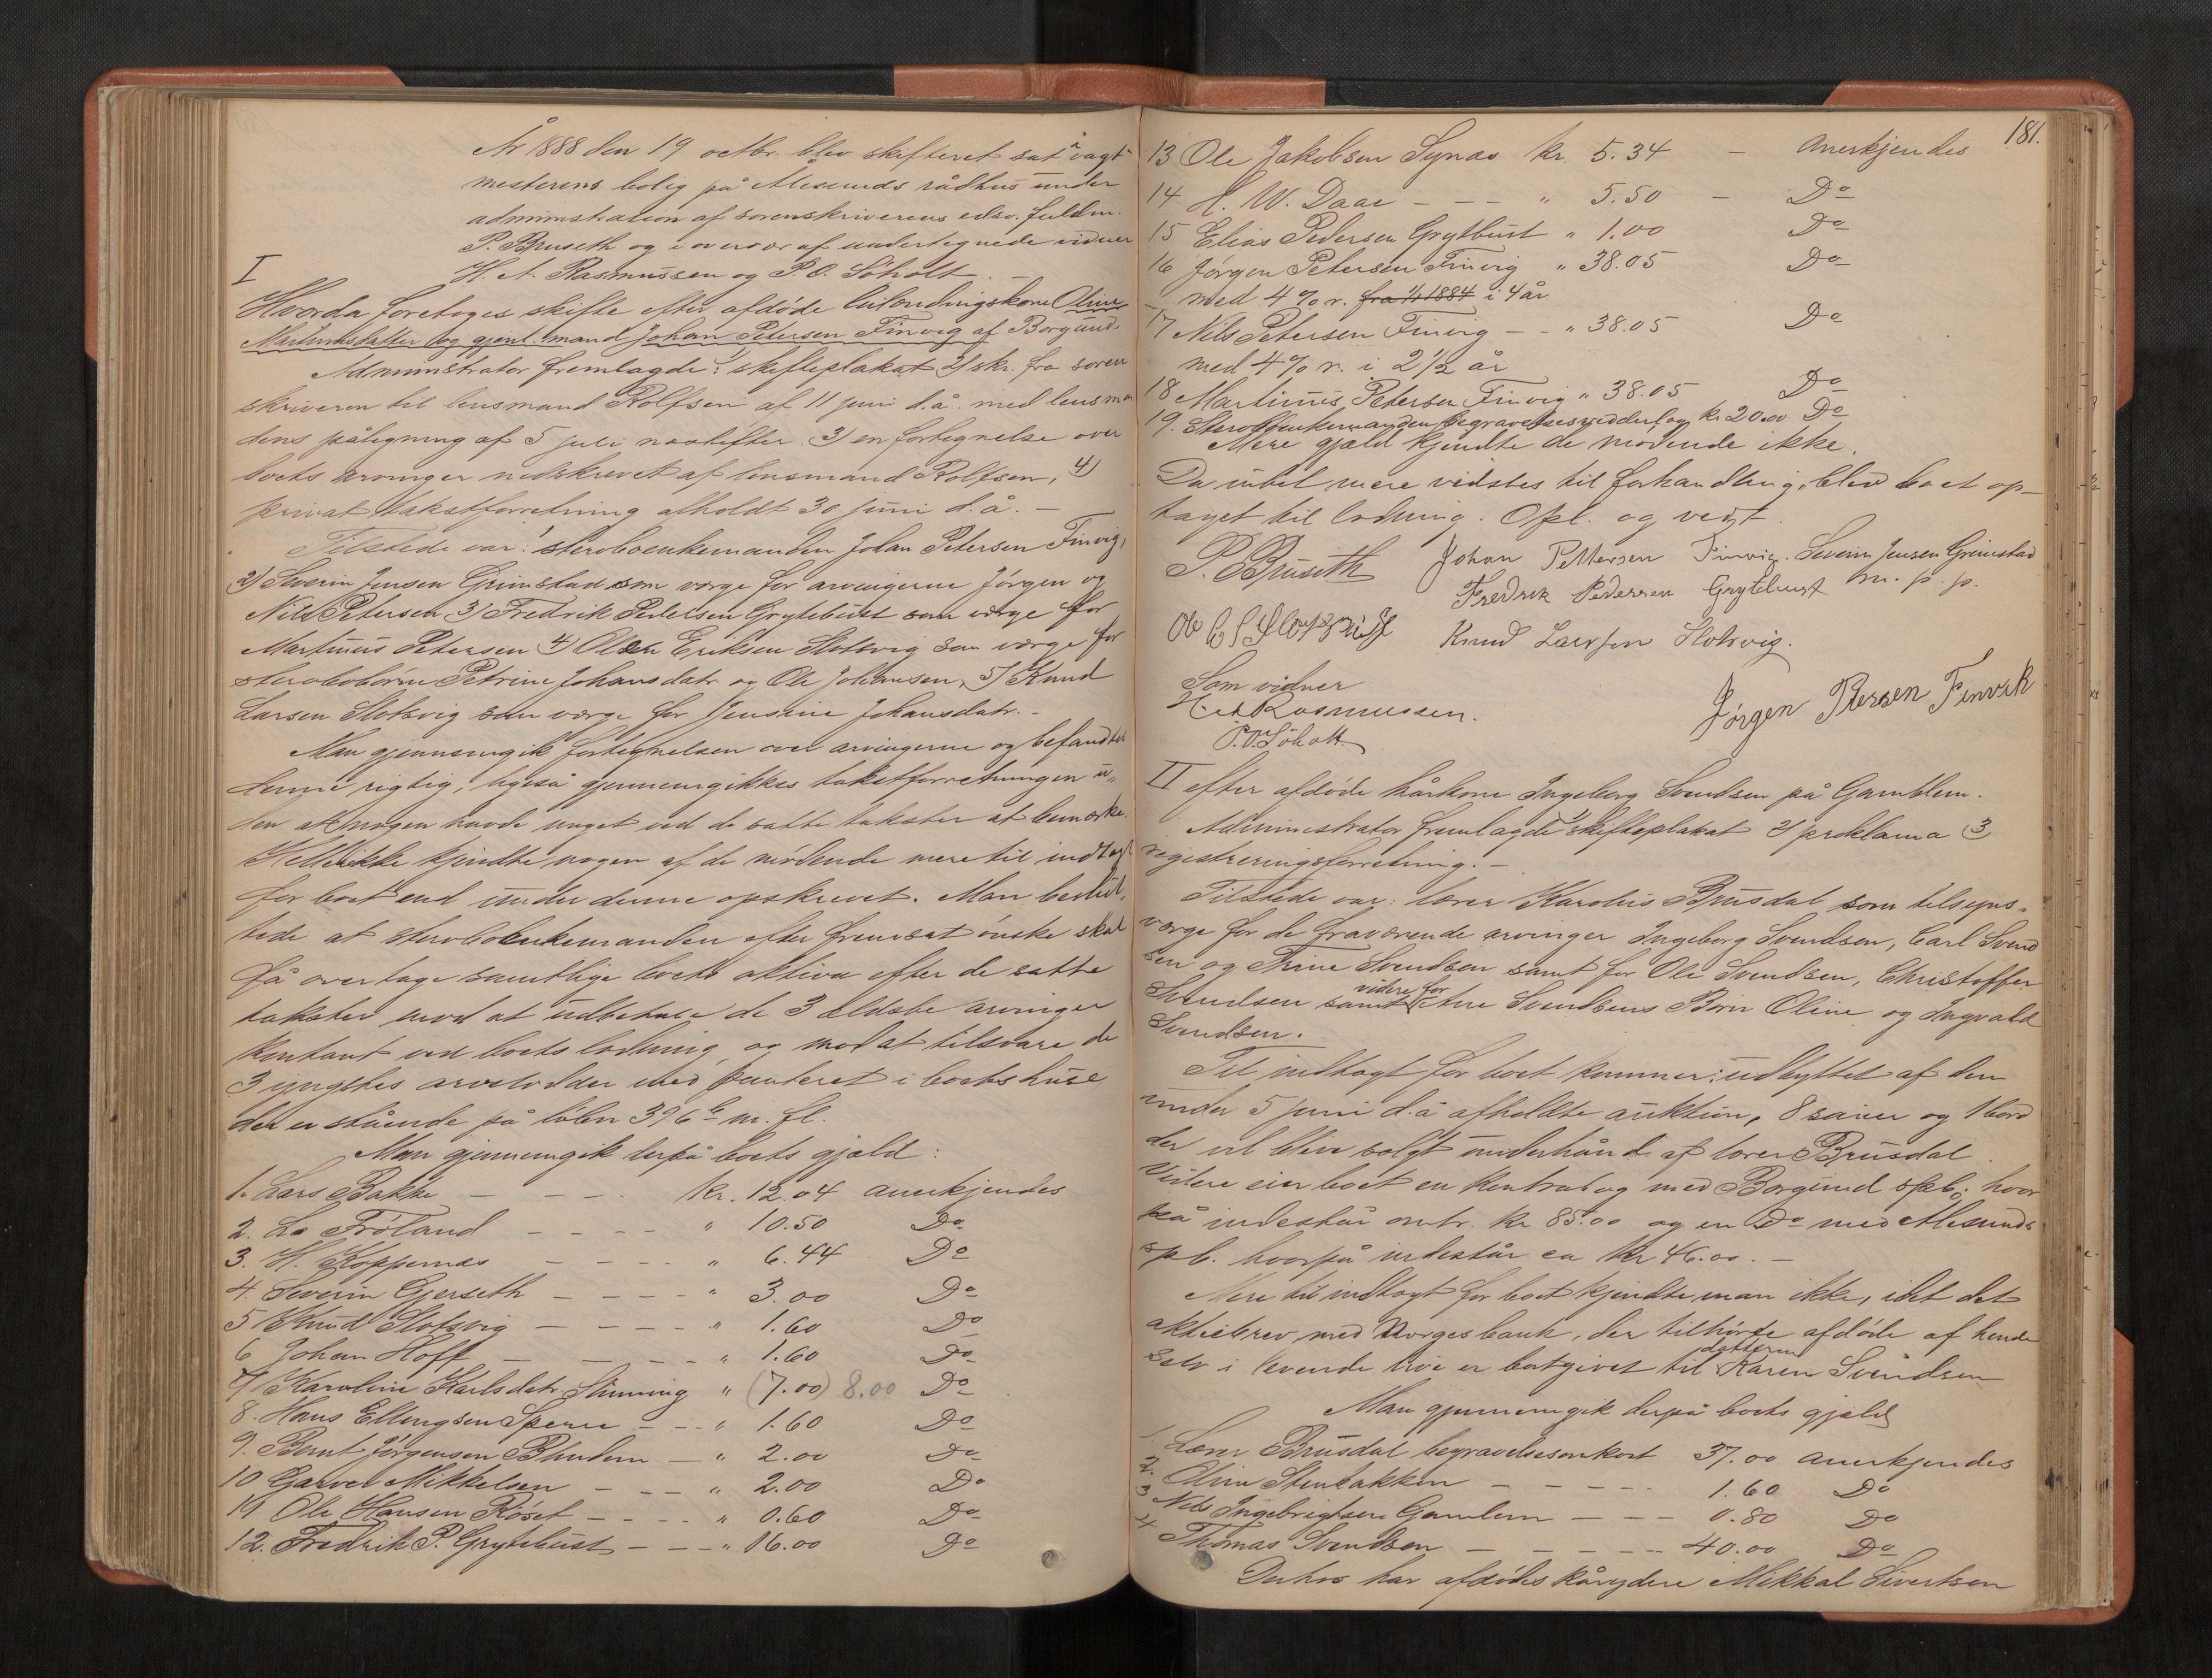 År 1888 den 19 octbr. blev skifteret sat i vagt-
mesterens bolig på Alesunds rådhus under
administration af sorenskriverens edsv. fuldm.
P. Bruseth og i overvær af undertegnede vidner
H. A. Rasmussen og P. O. Söholt. –
I
Hvorda foretoges skifte efter afdøde huskone Oline
Martinusdatter og gjenl. mand Johan Petersen Finvig af Borgund.
Administrator fremlagde: 1) skifteplakat 2) skr. fra soren
skriveren til lensmand Rolfsen af 11 juni d.å. med lensman
dens påtegning af 5 juli næstefter 3) en fortegnelse over
boets arvinger nedskrevet af lensmand Rolfsen, 4)
privat takstforretning afholdt 30 juni d.å. –
Tilstede var: 1 stervboenkemanden Johan Petersen Finvig,
2) Severin Jensen Grimstad som værge for arvingerne Jørgen og
Nils Petersen 3) Fredrik Pedersen Grytebust som værge for
Martinus Petersen 4) Ole Eriksen Slotsvig som værge for
stervbobørn Petrine Johansdatr og Ole Johansen, 5) Knud
Larsen Slotsvig som værge for Jensine Johansdatr. –
Man gjennemgik fortegnelsen over arvingerne og befandtes
denne rigtig, ligeså gjennemgikkes takstforretningen u-
den at nogen havde noget ved de satte takster at bemærke.
Hellerikke kjendte nogen af de mødende mere til indtægt
for boet end under denne opskrevet. Man beslut-
tede at stervboenkemanden efter fremsat ønske skal
få overtage samtlige boets aktiva efter de satte
takster mod at udbetale de 3 ældste arvinger
kontant ved boets slutning og mod at tilsvare de
3 yngstes arvelodder med panteret i boets huse
der er stående på løbn 396 b m. fl.
Man gjennemgik derpå boets gjæld:
1. Lars Bakke – – – kr. 12.04 anerkjendes
2. La Frøland – – – – " 10.50 Do
3. H. Koppernæs – – – – " 6.44 Do
4. Severin Gjerseth – – – – " 3.00 Do
5 Knud Slotsvig – – – – " 1.60 Do
6 Johan Hoff – – – – " 1.60 Do
7 Karoline Karlsdatr Slinning " (7.00) 8.00 Do
8. Hans Ellingsen Spevne – – – " 1.60 Do
9. Bernt Jörgensen Blindem – " 2.00 Do
10 Garvel Mikkelsen – – – " 2.00 Do
11 Ole Hansen Röset – – – – " 0.60 Do
12. Fredrik P. Grytebust – – – " 16.00 Do
181.
13 Ole Jakobsen Synæs kr. 5.34 – Anerkjendes
14 H. W. Daae – – – " 5.50 – Do
15 Elias Pedersen Grytbust " 1.00 Do
16 Jørgen Petersen Finvig " 38.05 Do
med 4 % r. fra 1/1 1884 i 4 år
17 Nils Petersen Finvig – – " 38.05 Do
med 4 % r. i 2 1/2 år
18 Martinus Petersen Finvig " 38.05 Do
19. Stervboenkemanden begravelsesvederlag kr 20.00 Do
Mere gjæld kjendte de mødende ikke.
Da intet mere vidstes til forhandling, blev boet op-
taget til lodning. Opl. og vedt.
P. Bruseth Johan Pettersen Finvig. Severin Jensen Grimstad
Fredrik Pedersen Grytebust m. p. p.
Ole E Slotzvig Knud Larssen Slotsvig.
Som vidner
H A Rasmussen. Jørgen Petersen Finvik
P. O. Söholt
II efter afdøde kårkone Ingeborg Svendsen på Gamblem.
Administrator fremlagde 1) skifteplakat 2) proklama 3
registreringsforretning. –
Tilstede var: lærer Karolus Brusdal som tilsyns-
værge for de fraværende arvinger Ingeborg Svendsen, Carl Svend
sen og Trine Svendsen samt for Ole Svendsen, Christoffer
Svendsen samt videre for Ane Svendsens Børn Oline og Ingvald
Svendsen.
Til indtægt for boet kommer: udbyttet af den
under 5 juni d.å afholdte auktion, 8 sauer og 1 bord
der vil blive solgt underhånd af lærer Brusdal.
Videre eier boet en kontrabog med Borgund spb. hvor
på indestår omtr. kr 85.00 og en Do med Alesunds
spb. hvorpå indestår ca kr 46.00. –
Mere til indtægt for boet kjendte man ikke, idet det
aktiebrev med Norges bank, der tilhørte afdøde af hende
selv i levende live er bortgivet til datteren Karen Svendsen
Man gjennemgik derpå boets gjæld
1. Lærer Brusdal begravelsesomkost 37.00 anerkjendes
2. Oline Stenbakken – – – – 1.60 Do
3 Nils Ingebrigtsen Gamlem – – – 0.80 Do
4 Thomas Svendsen – – – – – 40.00 Do
Derhos har afdødes kårydere Mikkal Sivertsen